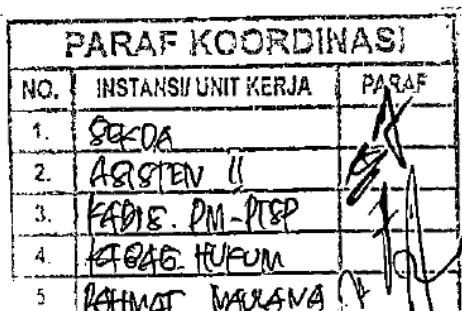 PARAF KOORDINASI
NO. INSTANSI/ UNIT KERJA PARAF
1. SEKDA
2. ASISTEN II
3. KADIS. PM-PTSP
4. KABAG. HUKUM
5 RAHMAT MAULANA